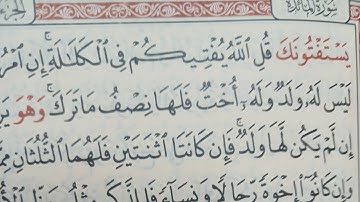 سورة المائدة الجزء
يَسْتَفْتُونَكَ قُلِ ٱللَّهُ يُفْتِيكُمْ فِى ٱلْكَلَٰلَةِ ۚ إِنِ ٱمْرُؤٌ
لَيْسَ لَهُۥ وَلَدٌ وَلَهُۥٓ أُخْتٌ فَلَهَا نِصْفُ مَا تَرَكَ ۚ وَهُوَ
إِن لَّمْ يَكُن لَّهَا وَلَدٌ ۚ فَإِن كَانَتَا ٱثْنَتَيْنِ فَلَهُمَا ٱلثُّلُثَانِ
وَإِن كَانُوٓا۟ إِخْوَةً رِّجَالًا وَنِسَآءً فَلِلذَّكَرِ مِثْلُ